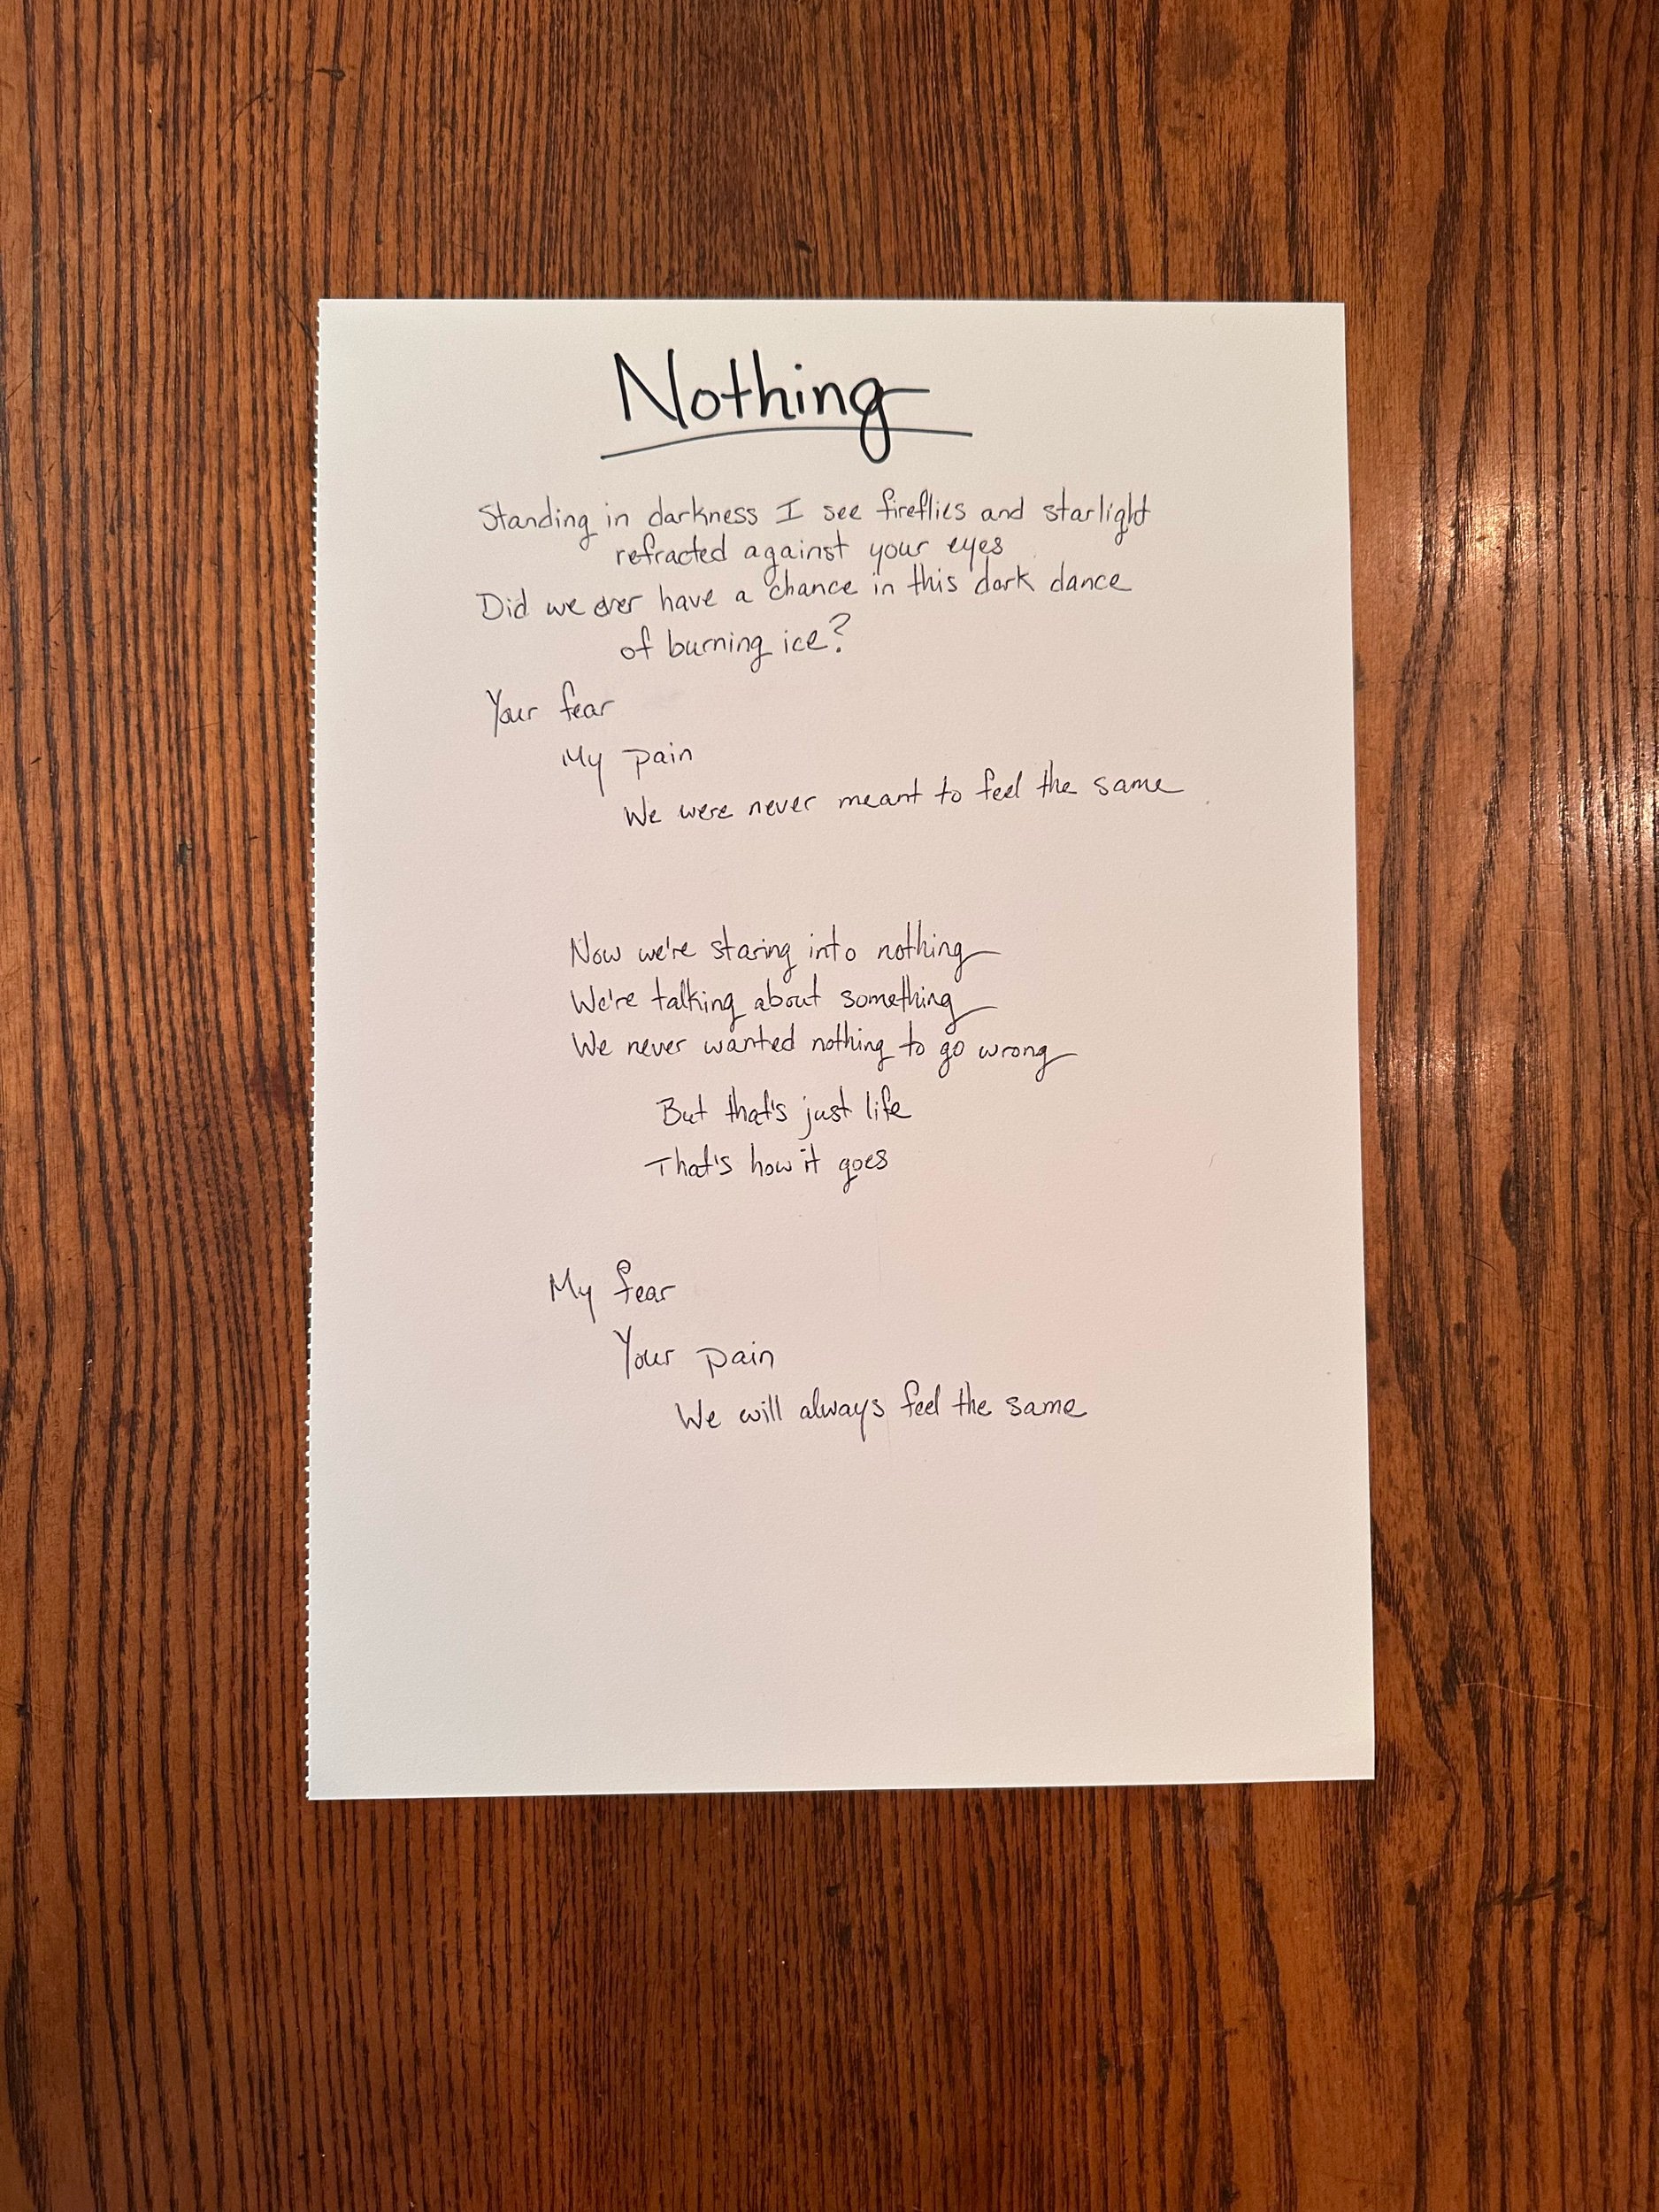 Nothing
Standing in darkness I see fireflies and starlight
refracted against your eyes
Did we ever have a chance in this dark dance
of burning ice?
Your fear
My pain
We were never meant to feel the same
Now we're staring into nothing
We're talking about something
We never wanted nothing to go wrong
But that's just life
That's how it goes
My fear
Your pain
We will always feel the same